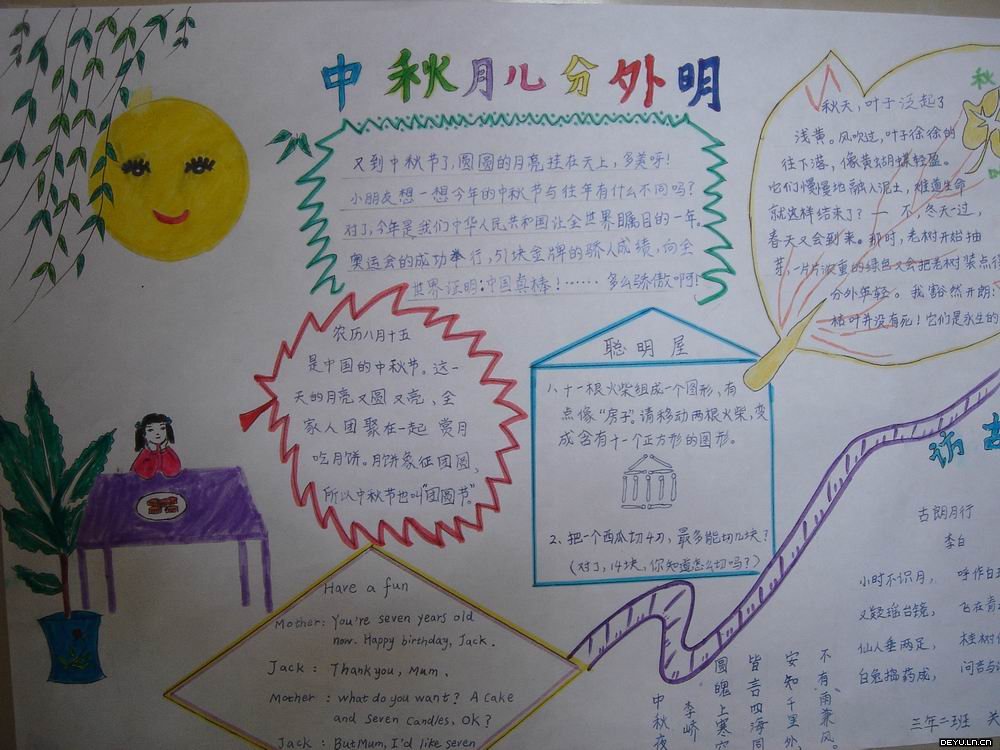 中秋月儿分外明
又到中秋节了,圆圆的月亮挂在天上,多美呀!
小朋友想一想今年的中秋节与往年有什么不同吗?
对了,今年是我们中华人民共和国让全世界瞩目的一年。
奥运会的成功举行,51块金牌的骄人成绩,向全
世界证明:中国真棒!……多么骄傲啊!
秋
秋天,叶子泛起了
浅黄。风吹过,叶子徐徐的
往下落,像黄蝴蝶轻盈。
它们慢慢地融入泥土,难道生命
就这样结束了?一不,冬天一过,
春天又会到来。那时,老树开始抽
芽,一片片浓重的绿色又会把老树装点得
分外年轻。我豁然开朗:
枯叶并没有死!它们是永生的
农历八月十五
是中国的中秋节。这一
天的月亮又圆又亮,全
家人团聚在一起赏月
吃月饼。月饼象征团圆,
所以中秋节也叫"团圆节"。
聪明屋
1、十一根火柴组成一个图形,有
点像"房子"。请移动两根火柴,变
成含有十一个正方形的图形。
2、把一个西瓜切4刀,最多能切几块?
(对了,14块,你知道怎么切吗?)
Have a fun
Mother: You're seven years old
now. Happy birthday, Jack.
Jack: Thank you, Mum.
Mother: what do you want? A cake
and seven candles, OK?
Jack: But Mum, I'd like seven
中秋夜
李峤
圆魄上寒空
皆言四海同
安知千里外
不有雨兼风
访古
古朗月行
李白
小时不识月, 呼作白
又疑瑶台镜, 飞在青
仙人垂两足, 桂树
白兔捣药成, 问言与
三年二班 关
DEYU.LN.CN